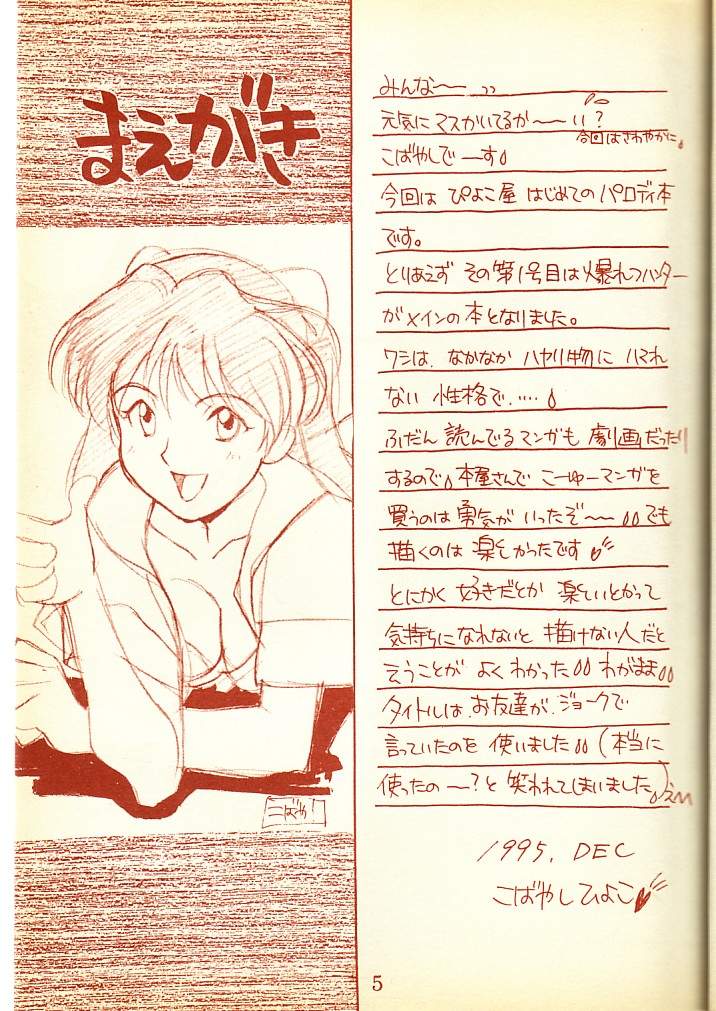 まえがき
みんな〜ッッ
元気にマスかいてるか〜い?
今回はさわやかに
こばやしでーす
今回は ぴよこ屋 はじめての パロディ本
です。
とりあえず その第1号目は爆れつハンター
がメインの本となりました。
ワシは、なかなか ハヤリ物に ハマれ
ない 性格で.....
ふだん 読んでるマンガも 劇画だったり
するので 本屋さんで こーゆーマンガを
買うのは 勇気が いったぞ〜 でも
描くのは 楽しかったです
とにかく 好きだとか 楽しいとかって
気持ちになれないと 描けない人だと
そうことが よくわかった わがまま
タイトルは、お友達が、ジョークで
言っていたのを 使いました (本当に
使ったの〜?と 笑われてしまいました)
1995. DEC
こばやしひよこ
こばや!
5